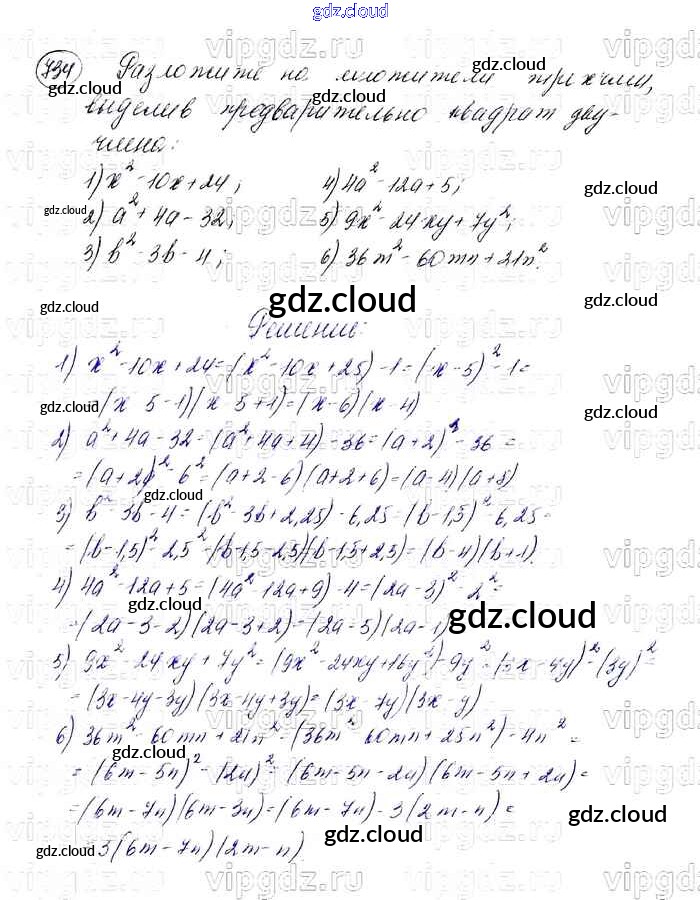 gdz.cloud
734 Разложите на множители трехчлен,
выделив предварительно квадрат дву-
члена:
1) x² - 10x + 24; 4) 4a² - 12a + 5;
2) a² + 4a - 32; 5) 9x² - 24xy + 7y²;
3) b² - 3b - 4; 6) 36m² - 60mn + 21n².
Решение:
1) x² - 10x + 24 = (x² - 10x + 25) - 1 = (x - 5)² - 1 =
= (x - 5 - 1)(x - 5 + 1) = (x - 6)(x - 4)
2) a² + 4a - 32 = (a² + 4a + 4) - 36 = (a + 2)² - 36 =
= (a + 2)² - 6² = (a + 2 - 6)(a + 2 + 6) = (a - 4)(a + 8)
3) b² - 3b - 4 = (b² - 3b + 2,25) - 6,25 = (b - 1,5)² - 6,25 =
= (b - 1,5)² - 2,5² = (b - 1,5 - 2,5)(b - 1,5 + 2,5) = (b - 4)(b + 1)
4) 4a² - 12a + 5 = (4a² - 12a + 9) - 4 = (2a - 3)² - 2² =
= (2a - 3 - 2)(2a - 3 + 2) = (2a - 5)(2a - 1)
5) 9x² - 24xy + 7y² = (9x² - 24xy + 16y²) - 9y² = (3x - 4y)² - (3y)² =
= (3x - 4y - 3y)(3x - 4y + 3y) = (3x - 7y)(3x - y)
6) 36m² - 60mn + 21n² = (36m² - 60mn + 25n²) - 4n² =
= (6m - 5n)² - (2n)² = (6m - 5n - 2n)(6m - 5n + 2n) =
= (6m - 7n)(6m - 3n) = (6m - 7n) · 3(2m - n) =
= 3(6m - 7n)(2m - n)